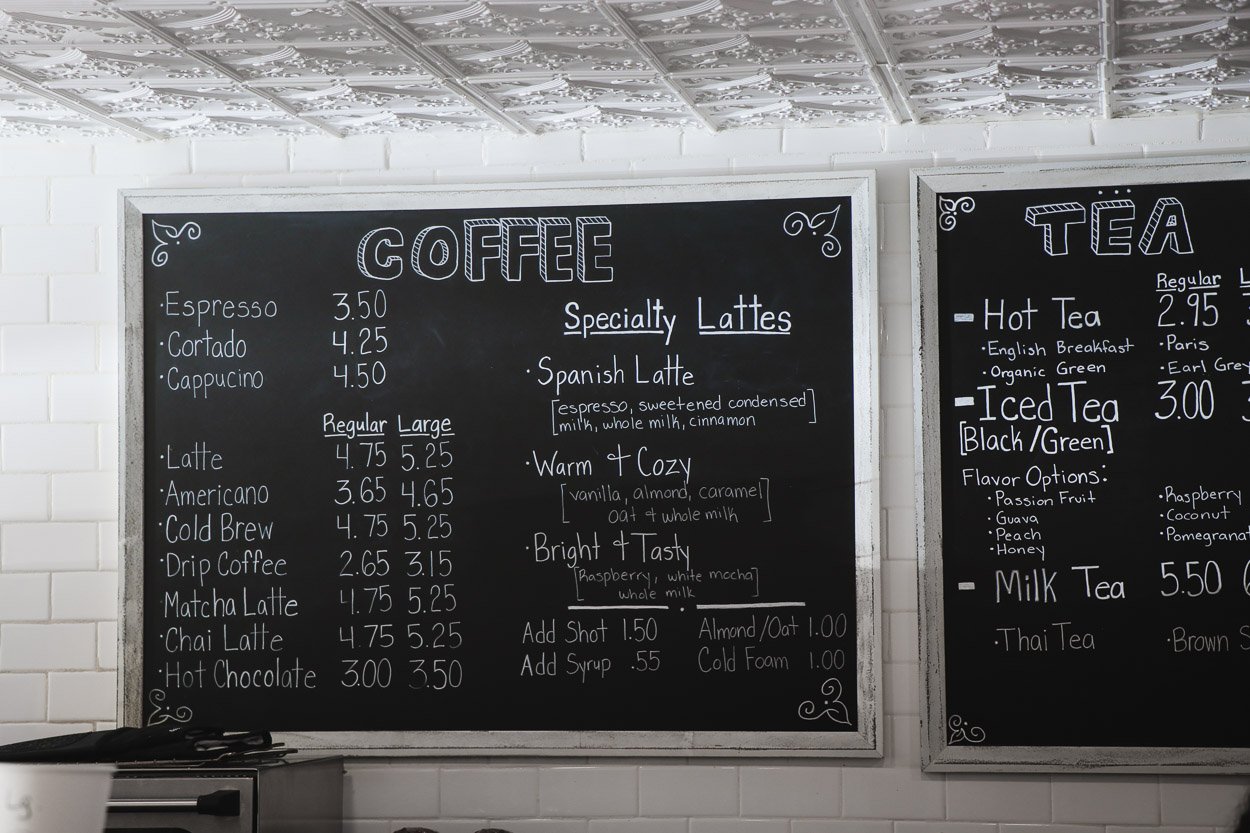 COFFEE
·Espresso 3.50
·Cortado 4.25
·Cappucino 4.50
Regular Large
·Latte 4.75 5.25
·Americano 3.65 4.65
·Cold Brew 4.75 5.25
·Drip Coffee 2.65 3.15
·Matcha Latte 4.75 5.25
·Chai Latte 4.75 5.25
·Hot Chocolate 3.00 3.50
Specialty Lattes
·Spanish Latte
[espresso, sweetened condensed
milk, whole milk, cinnamon]
·Warm & Cozy
[vanilla, almond, caramel
oat & whole milk]
·Bright & Tasty
[Raspberry, white mocha
whole milk]
Add Shot 1.50 Almond/Oat 1.00
Add Syrup .55 Cold Foam 1.00
TEA
Regular
- Hot Tea 2.95
·English Breakfast ·Paris
·Organic Green ·Earl Grey
- Iced Tea 3.00
[Black/Green]
Flavor Options:
·Passion Fruit ·Raspberry
·Guava ·Coconut
·Peach ·Pomegranat
·Honey
- Milk Tea 5.50
·Thai Tea ·Brown S